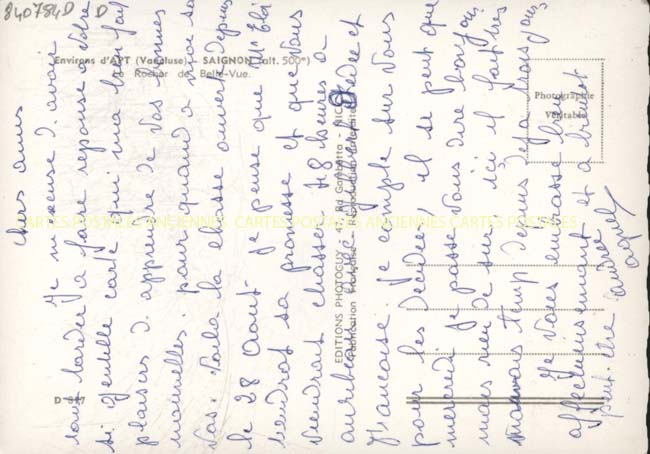 840784D D
Environs d'APT (Vaucluse) - SAIGNON (alt. 500m)
Le Rocher de Belle-Vue.
Photographie
Véritable
EDITIONS PHOTOGUY - 47, Bd Gambetta - NICE
Fabrication Française - Reproduction interdite
D 817
CARTES POSTALES ANCIENNES CARTES POSTALES ANCIENNES CARTES POSTALES ANCIENNES
chers amis
Je m'excuse d'avoir
tarder a faire reponse a votre
si gentille carte qui m'a bien fait
plaisirs d'apprendre de vos bonnes
nouvelles. pour quand a moi sa
vas. Voila la chasse ouverte depuis
le 28 Aout. je pense que Mr
tiendrat sa promesse et que vous
viendrait chasser 48 heures a
et
Françoise. Je compte sur vous
pour les Dendée, il se peut que
mercredi je passe vous dire bonjour
mais rien de sur. ici il fait tres
mauvais temp depuis 3 jours
Je vous embrasse bien
affectueusement et a bientot
peut. etre André